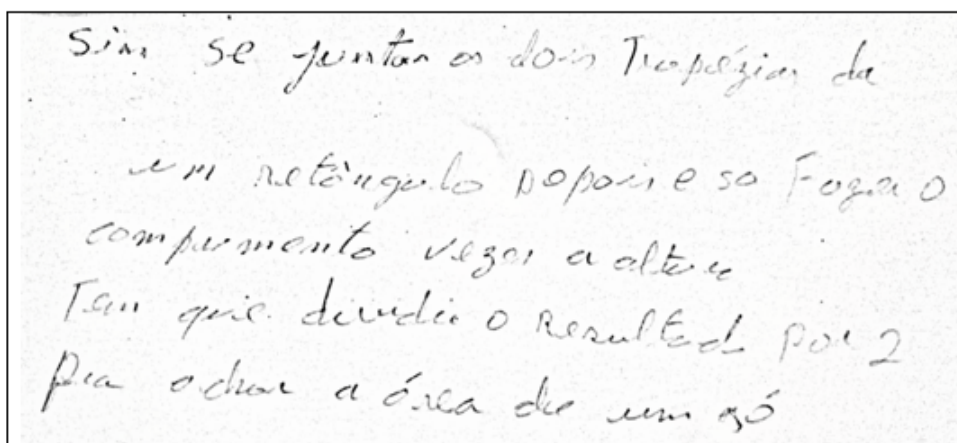 Sim se juntar os dois Trapézios da
um retângulo Depois e so Fazer o
comprimento vezes a altura
Tem que dividir o resultado por 2
pra achar a área de um só